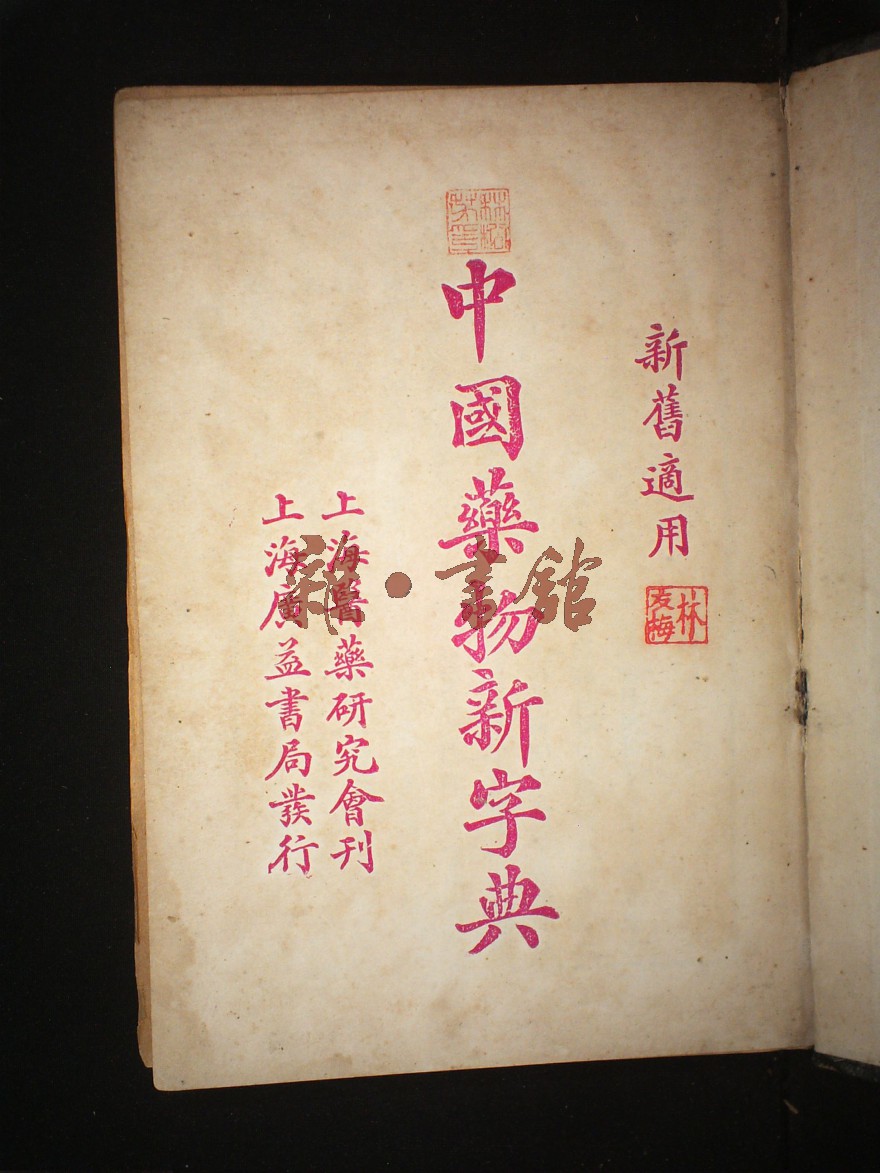 新舊適用
林友梅
中國藥物新字典
上海醫藥研究會刊
上海廣益書局發行
雜·書舘